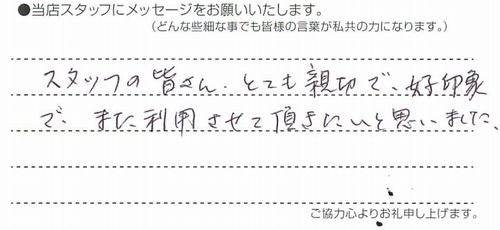 ●当店スタッフにメッセージをお願いいたします。
(どんな些細な事でも皆様の言葉が私共の力になります。)
スタッフの皆さん、とても親切で、好印象
で、また利用させて頂きたいと思いました。
ご協力心よりお礼申し上げます。